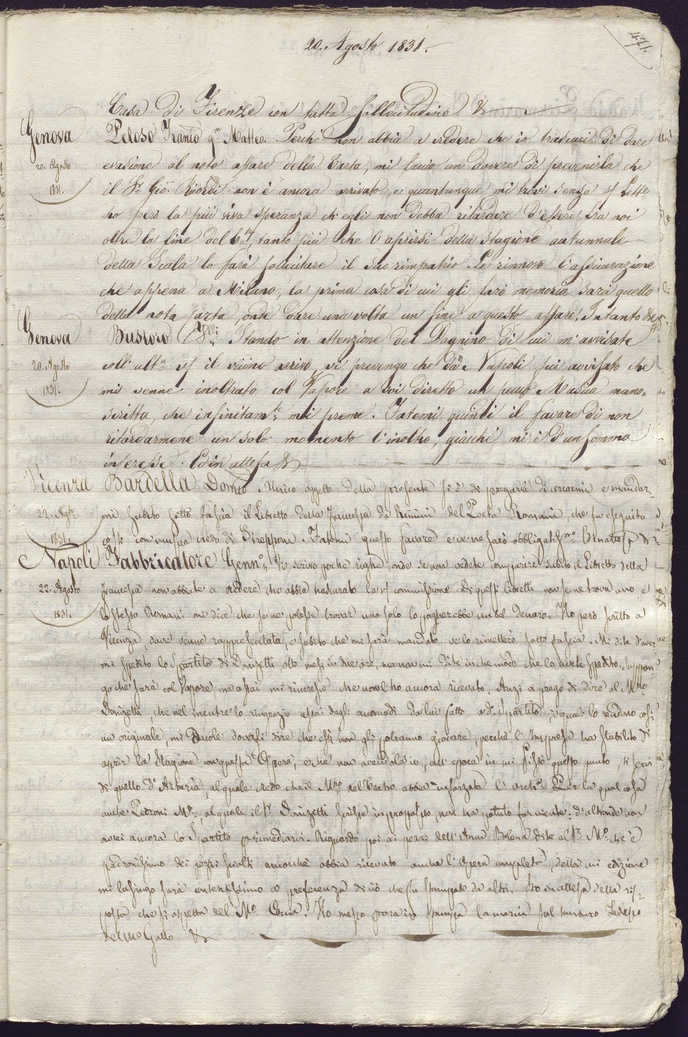 471.
20. Agosto 1831.
Casa di Firenze con tutta sollecitudine &
Genova
20. Agosto
1831.
Peloso Franco qm Matteo. Perché non abbia a credere che io trascuri di dare
evasione al noto affare della Carta, mi faccio un dovere di prevenirla che
il Sr. Gio. Ricordi non è ancora arrivato, e quantunque mi trovi senza
ho però la più viva speranza ch'egli non debba ritardare d'essere fra noi
oltre la fine del tanto più che l'aprirsi della stagione autunnale
della Scala lo farà sollecitare il suo rimpatrio. Le rinnovo l'assicurazione
che appena a Milano, la prima cosa di cui gli farò memoria sarà quello
della nota carta, onde dare una volta un fine a questo affare. Intanto &
Genova
20. Agosto
1831.
Stando in attenzione del Paganino di cui m'avvisate
coll' ultª il vicino arrivo vi prevengo che da Napoli fui avvisato che
mi venne inoltrato col Vapore a voi diretto un pacco Musica mano-
scritta, che infinitamte mi preme. Fatemi quindi il favore di non
ritardarmene un solo momento l'inoltro, giacché mi è d'un sommo
interesse. Ed in attesa &
Vicenza
22. Agto
1831.
Bardella Domco. Unico oggetto della presente si è di pregarvi di cercarmi e mandar-
mi subito sotto fascia il Libretto della Francesca da Rimini del Poeta Romani, che fu eseguito
costì con musica. Fatemi questo favore e ve ne sarò obbligatmo.
Napoli
22. Agosto
1831.
Fabbricatore Gennro. Vi scrivo poche righe onde se non vedete comparire subito il Libretto della
Francesca non abbiate a credere che abbia trascurato la commissione. Di questi libretti non se ne trova uno e
lo stesso Romani mi dice che se ne potesse trovar uno solo lo pagherebbe un bel denaro. Ho però scritto a
Vicenza, dove venne rappresentata, e subito che mi sarà mandato ve lo rimetterò sotto fascia. Mi dite d'aver
mi spedito lo spartito di Donizetti, ma non mi dite in che modo che lo avete spedito. Suppon
go che sarà col Vapore ma assai mi rincresce che non l'ho ancora ricevuto. Anzi vi prego di dire al Mro
Donizetti, che nel mentre lo ringrazio assai degli accomodi da lui fatto a do. spartito, i quali lo rendono così
uno originale, mi duole dovergli dire che essi non gli potranno giovare, perché l'Impresa ha stabilito di
aprir la Stagione con questa Opera, e che non avendola io, all'epoca in cui fissò questo punto, si servì
di quello d'Artaria, al quale credo che il Mro
anche Petroni Mo. al quale il Sr. Donizetti scrisse in proposito, non ha potuto far niente: d'altronde non
avrei ancora lo Spartito per rimediarvi. Riguardo poi ai pezzi dell'Anna Bolena dite al Sr. Mo. che è
padronissimo dei pezzi scelti ancorché abbia ricevuto anche l'Opera completa, della mia edizione
mi lusingo sarà contentissimo a preferenza di ciò che fu stampato da altri. Sto in attesa della ris-
posta che si aspetta del Mo. Coccia. Ho messo
del Mo Gallo &